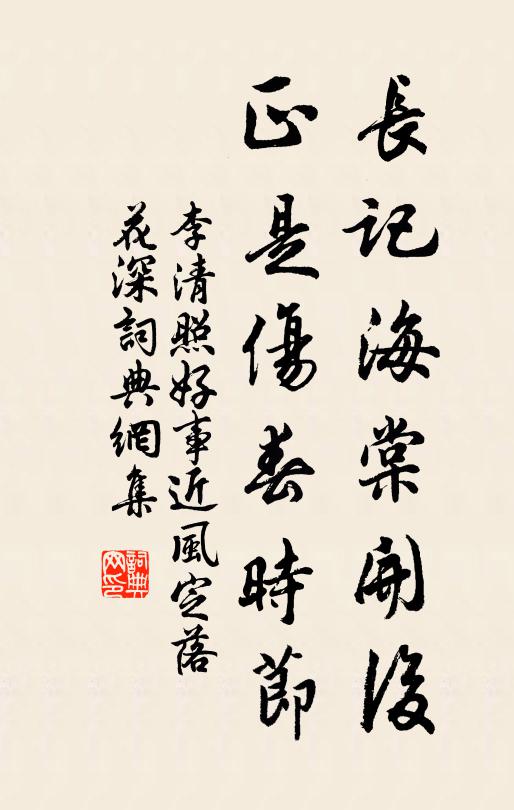 長記海棠開後
正是傷春時節
李清照好事近風定落
花深詞典網集
詞典網印